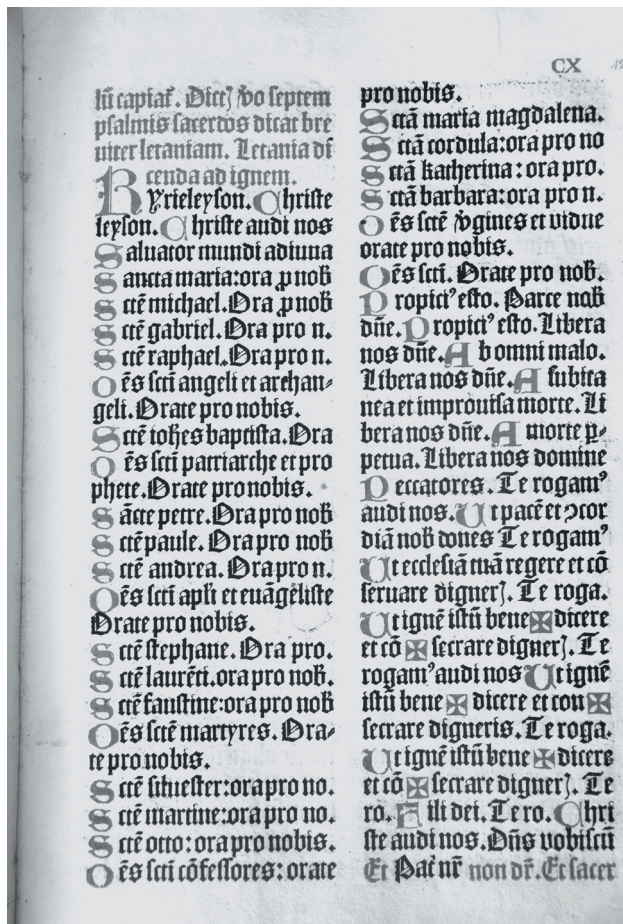 CX
lū capiat᷑. Dictꝭ ꝟo septem
psalmis sacerdos dicat bre
uiter letaniam. Letania di
cenda ad ignem.
Kyrieleyson. Christe
leyson. Christe audi nos
Saluator mundi adiuua
Sancta maria:ora ꝓ nob̄
Sctē michael. Ora ꝓ nob̄
Sctē gabriel. Ora pro n.
Sctē raphael. Ora pro n.
Oēs scti angeli et archan⸗
geli. Orate pro nobis.
Sctē ioh̄es baptista. Ora
Oēs scti patriarche et pro
phete. Orate pro nobis.
Sācte petre. Ora pro nob̄
Sctē paule. Ora pro nob̄
Sctē andrea. Ora pro n.
Oēs scti apl̄i et euāgēliste
Orate pro nobis.
Sctē stephane. Ora pro.
Sctē laurēti. ora pro nob̄.
Sctē faustine:ora pro nob̄
Oēs sctē martyres. Ora⸗
te pro nobis.
Sctē siluester:ora pro no.
Sctē martine:ora pro no.
Sctē otto: ora pro nobis.
Oēs scti cōfessores: orate
pro nobis.
Sctā maria magdalena.
Sctā cordula:ora pro no
Sctā katherina: ora pro.
Sctā barbara:ora pro n.
Oēs sctē ꝟgines et vidue
orate pro nobis.
Oēs scti. Orate pro nob̄.
Propici᾽ esto. Parce nob̄
dn̄e. Propici᾽ esto. Libera
nos dn̄e. Ab omni malo.
Libera nos dn̄e. A subita
nea et improuisa morte. Li
bera nos dn̄e. A morte ꝑ⸗
petua. Libera nos domine
Peccatores. Te rogam᾽
audi nos. Ut pacē et ꝯcor
diā nob̄ dones Te rogam᾽
Ut ecclesiā tuā regere et cō
seruare dignerꝭ. Te roga.
Ut ignē istū bene✠dicere
et cō ✠ secrare dignerꝭ. Te
rogam᾽ audi nos Ut ignē
istū bene ✠ dicere et con ✠
secrare digneris. Te roga.
Ut ignē istū bene ✠dicere
et cō ✠ secrare dignerꝭ. Te
ro. Fili dei. Te ro. Chri
ste audi nos. Dn̄s vobiscū
Et Pat̄ nr̄ non dr̄. Et sacer